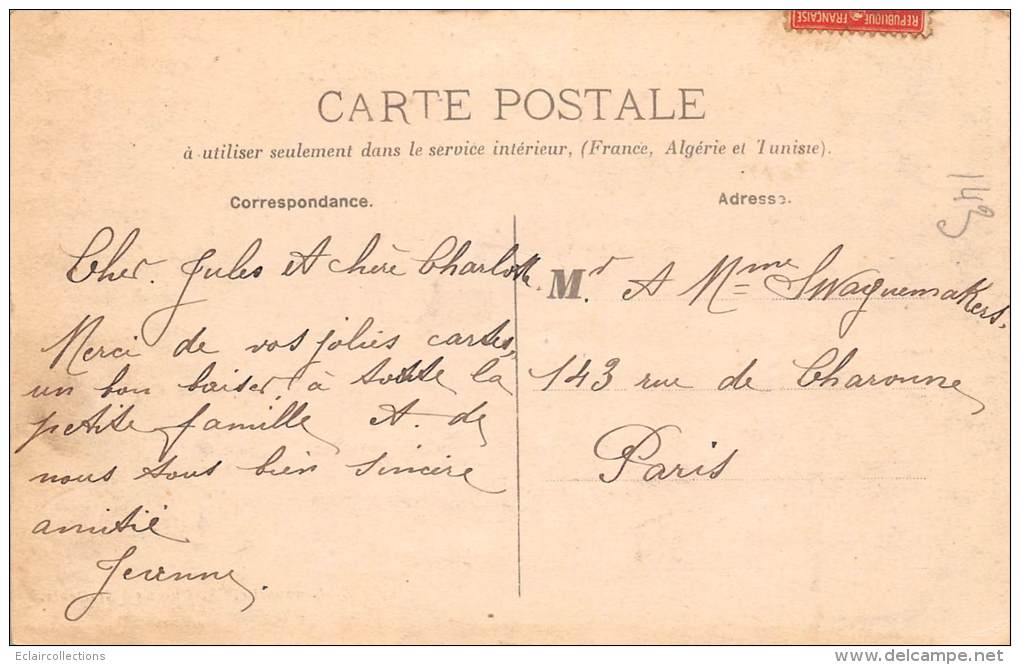 REPUBLIQUE
FRANÇAISE
CARTE POSTALE
à utiliser seulement dans le service intérieur, (France, Algérie et Tunisie).
Correspondance.
Cher Jules et chère Charlotte
Merci de vos jolies cartes,
un bon baiser à toute la
petite famille et de
nous tous bien sincère
amitié
Jeanne.
Adresse.
143
Mr. et Mme Swaguemakers.
143 rue de Charonne
Paris
Eclaircollections
www.delcampe.net